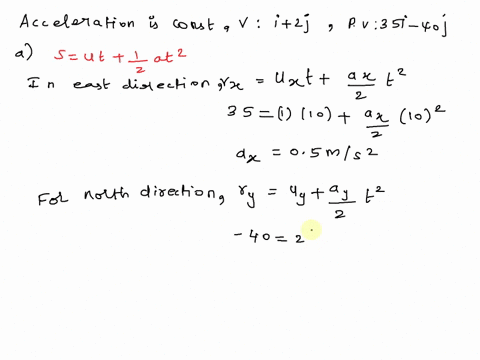 Acceleration is const, V: i+2j, P.V: 35i-40j
a) S = ut + 1/2 at²
In east direction, rx = uxt + ax/2 t²
35 = (1)(10) + ax/2 (10)²
ax = 0.5 m/s²
For north direction, ry = uy + ay/2 t²
-40 = 2